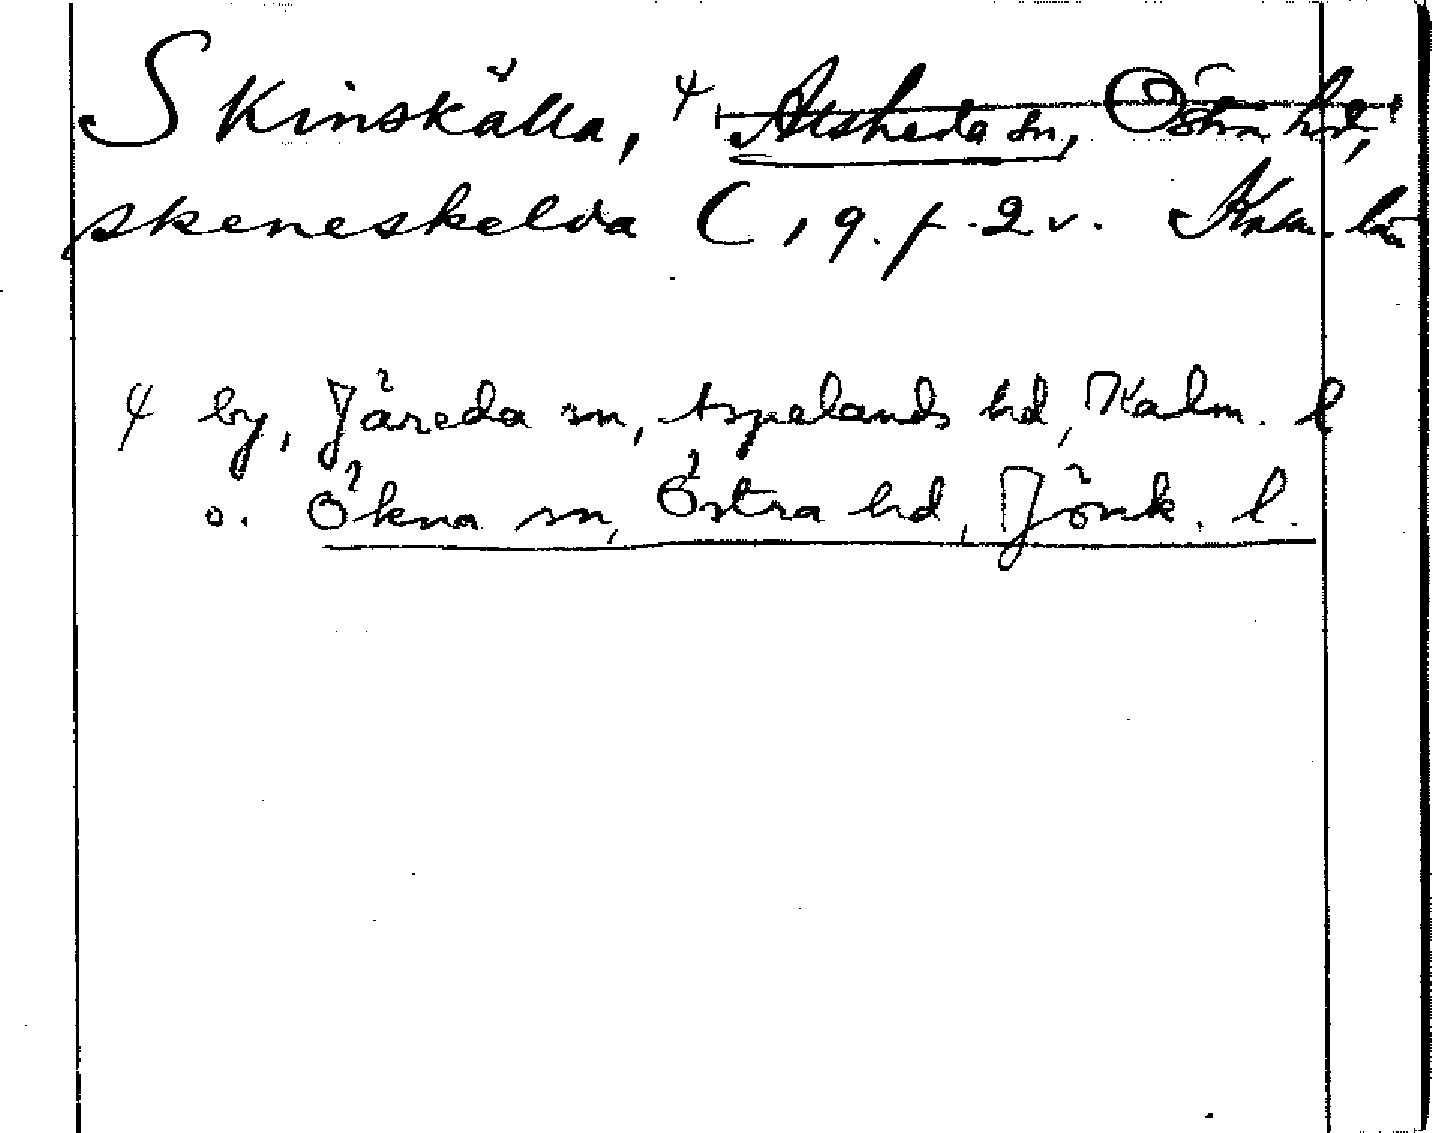 Skinskälla, 4 Alsheda sn, Östra hd,
skeneskelda C 19 f. 2 v. Kalm. län
4 by, Järeda sn, Aspelands hd, Kalm. l
o. Ökna sn, Östra hd, Jönk. l.